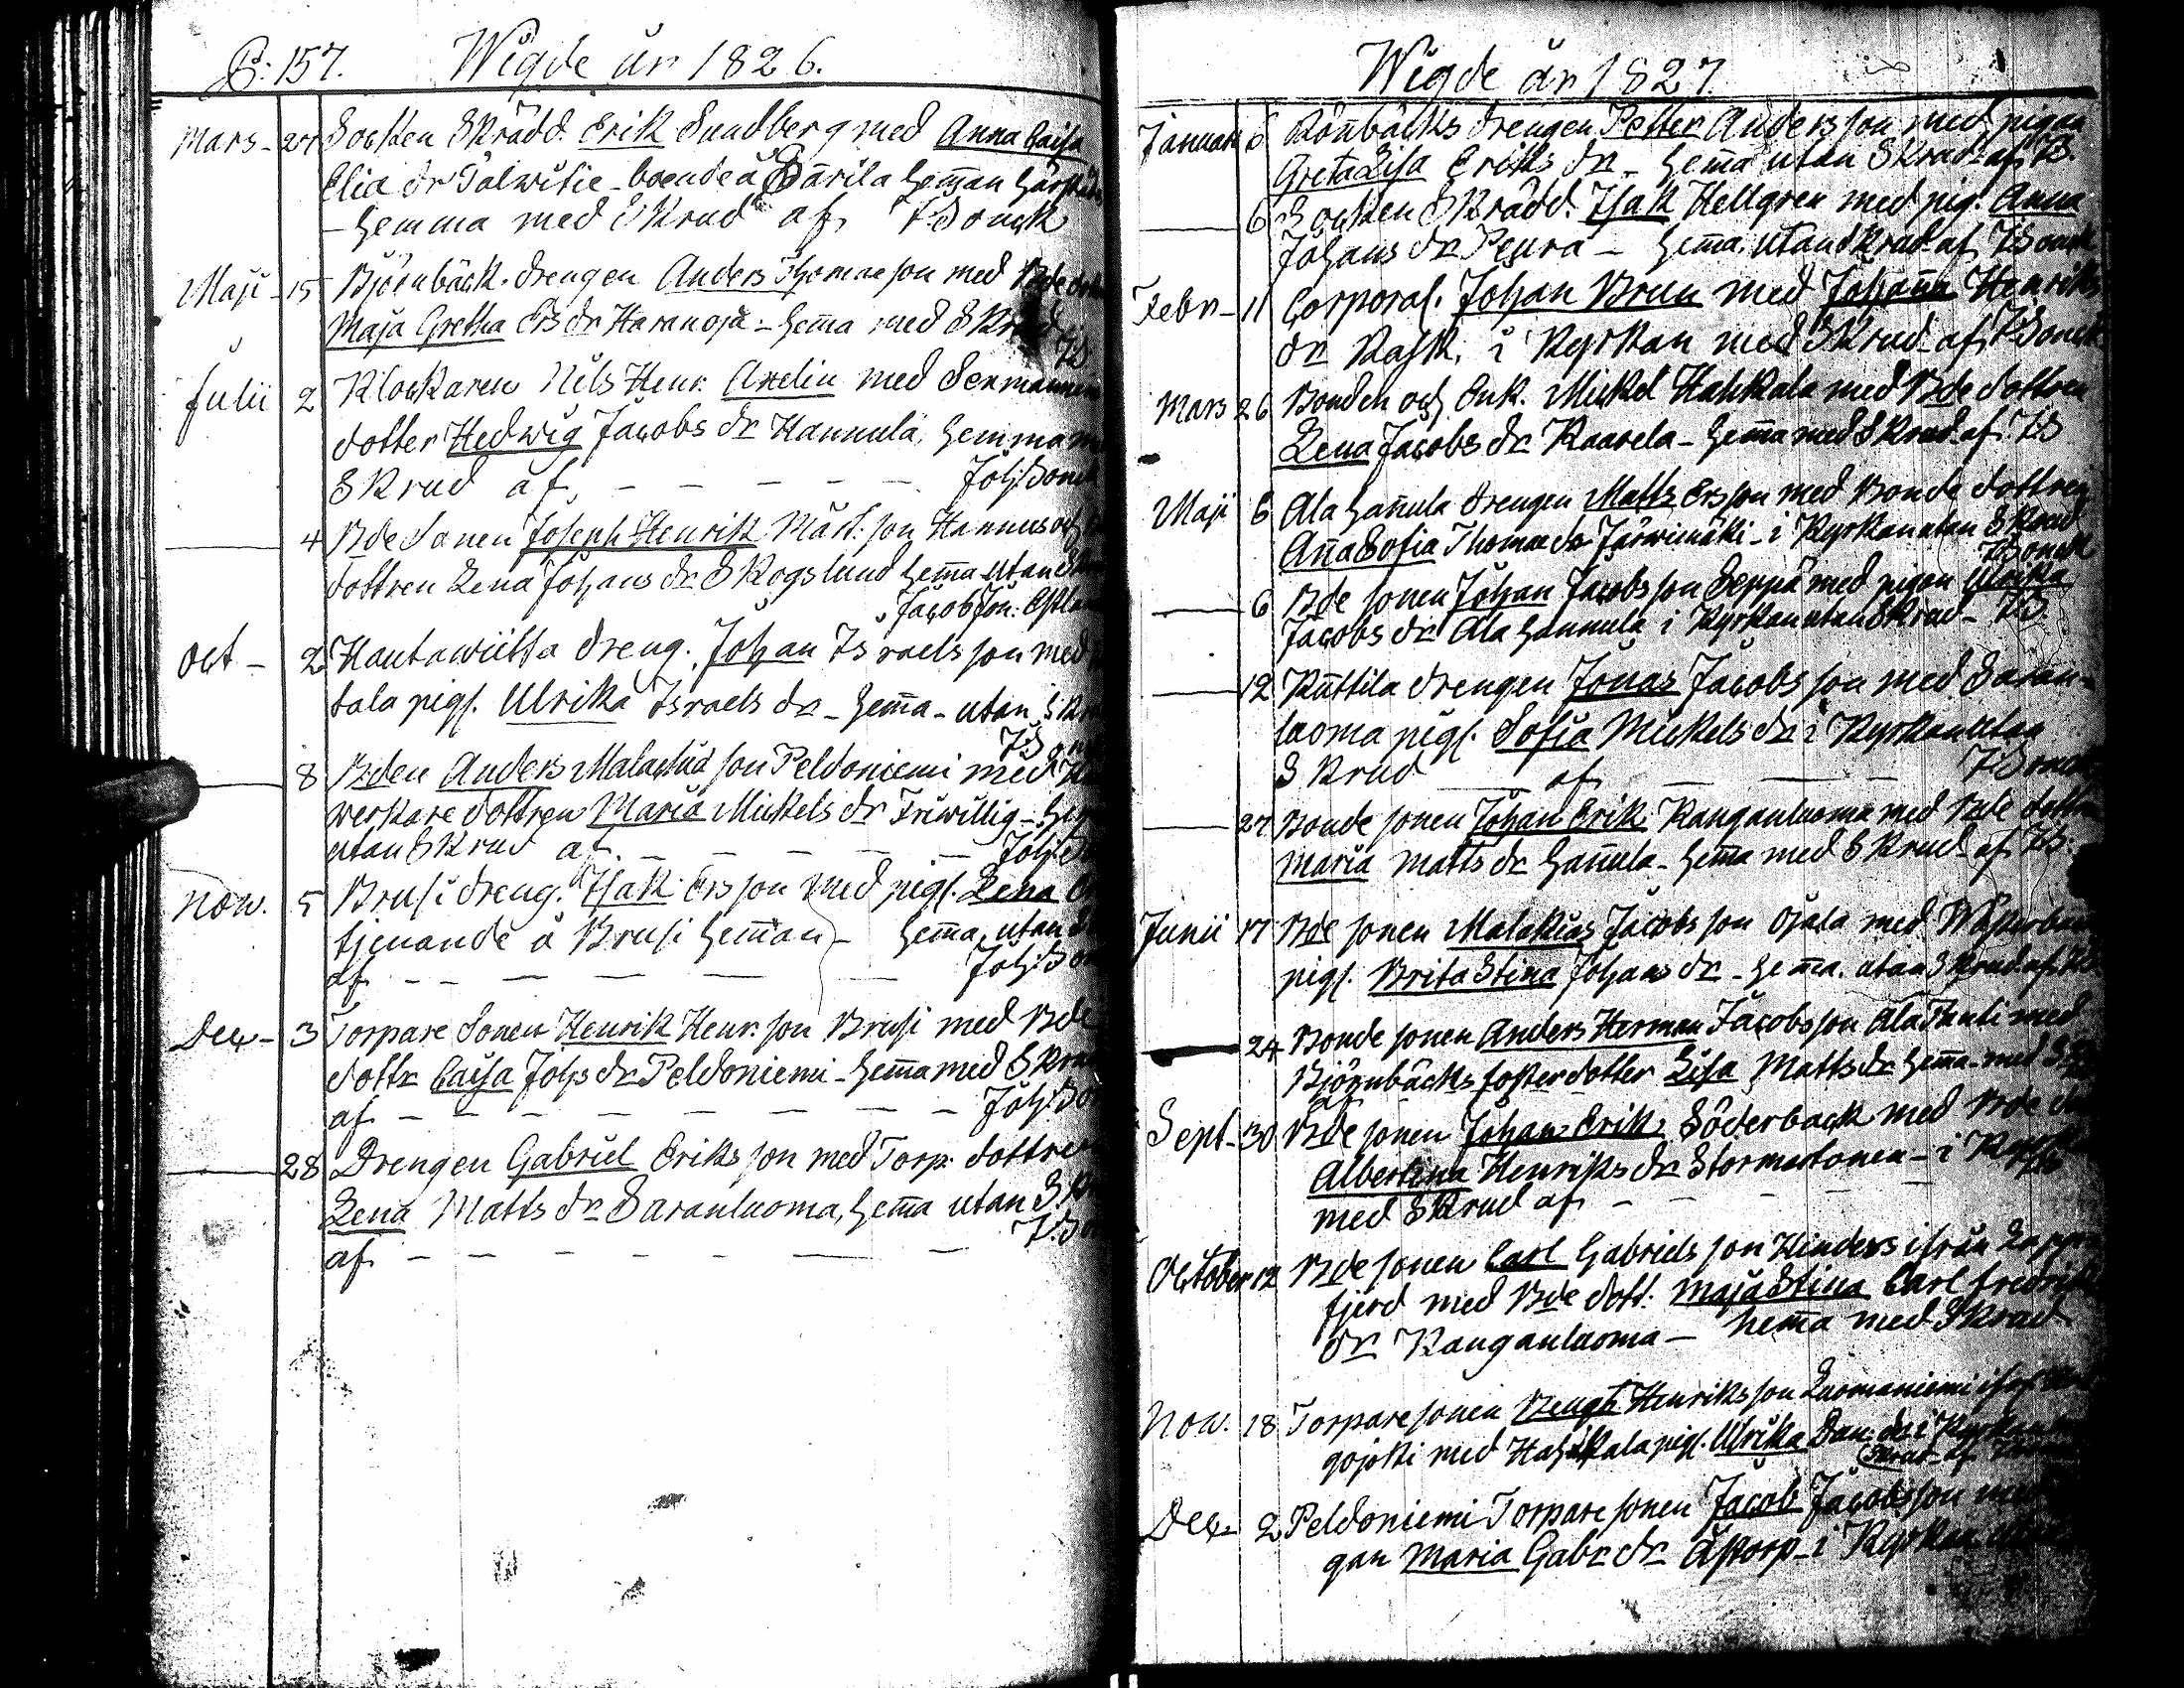 P: 157. Wigde år 1826.
Mars - 27 Socken Skrädd. Erik Sundberg med Anna Caisa
Elia dr Talwitie - boende å Särila hemman
- hemma med Skrud af J. Bonck
Maji - 15 Björnbäck. drengen Anders Thomae son med Bde
Maja Gretha Ers dr Haranoja - hem̄a med Skrud
JB
Julii 2 Klockaren Nils Henr. Axelin med Sexmannens
dotter Hedwig Jacobs dr Hannula, hemma
Skrud af - - - - - Joh: Bonck
4 Bde Sonen Joseph Henrik Mårt. son Hannus och
dottren Lena Johans dr Skogslund hem̄a utan
Jacob Joh: Estlan
Oct - 2 Hautawiitta dreng. Johan Israels son med
tala pigs. Ulrika Israels dr - hem̄a - utan Skr
JB
8 Bden Anders Malachiæ son Peldoniemi med
werkare dottren Maria Mickels dr Friwillig -
utan Skrud af. - - - - - Joh:
Now. 5 Brusi dreng. Isak Ers son med pigs. Lena
tjenande å Brusi hem̄an - hem̄a utan
af - - - - - Joh: Bon
Dec - 3 Torpare Sonen Henrik Henr. son Brusi med Bde
dottr Caisa Johs dr Peldoniemi - hem̄a med Skru
af - - - - - - - Joh: Bon
28 Drengen Gabriel Eriks son med Torp. dottren
Lena Matts dr Saranluoma, hem̄a utan
af - - - - - - J. Bon
Wigde år 1827.
Januari 6 Rön̄bäcks drengen Petter Anders son med pigan
Greta Lisa Eriks dr - hem̄a utan Skrud af JB.
6 Socken Skrädd. Isak Hellgren med pig. Anna
Johans dr Peura - hem̄a utan Skrud af J Bonck
Febr - 11 Corporal. Johan Brun med Johan̄a Henriks
dr Rask, i Kyrkan med Skrud af J Bonck
Mars 26 Bonden och Enk. Mickel Hahkala med Bde dottren
Lena Jacobs dr Kaarela - hem̄a med Skrud af JB
Maji 6 Ala han̄ula drengen Matts Ersson med Bonde dottren
An̄a Sofia Thomae dr Järwimäki - i Kyrkan utan Skrud
J Bonck
6 Bde sonen Johan Jacobs son Seppä med pigan Ulrika
Jacobs dr Ala hannula i Kyrkan utan Skrud - JB
12 Kuttila drengen Jonas Jacobs son med Saran-
luoma pigs. Sofia Mickels dr i Kyrkan utan
Skrud af - - - J Bonck
27 Bonde sonen Johan Erik Kanganluoma med Bde dottren
Maria Matts dr Han̄ula - hem̄a med Skrud af JB.
Junii 17 Bde sonen Malakias Jacobs son Ojala med
pigs. Brita Stina Johans dr - hem̄a. utan Skrud. af JB
24 Bonde sonen Anders Herman Jacobs son Ala med
Björnbäcks foster dotter Lisa Matts dr hem̄a - med
Sept - 30 Bde sonen Johan Erik Söderback med Bde
Albertina Henriks dr Stormartonen - i Kyrk
med Skrud af - - - - -
October 12 Bde sonen Carl Gabriels son Hinders ifrån Lapp-
fjerd med Bde dott. Maja Stina Carl Fredriks
dr Kanganluoma - hem̄a med Skrud
Now. 18 Torpare sonen Bengt Henriks son Luomaniemi
gojoki med Hahkala pigs. Ulrika Dan: dr i Kyrkan
Skrud af
Dec. 2 Peldoniemi Torpare sonen Jacob Jacobs son med
gan Maria Gabr dr Åstorp - i Kyrkan